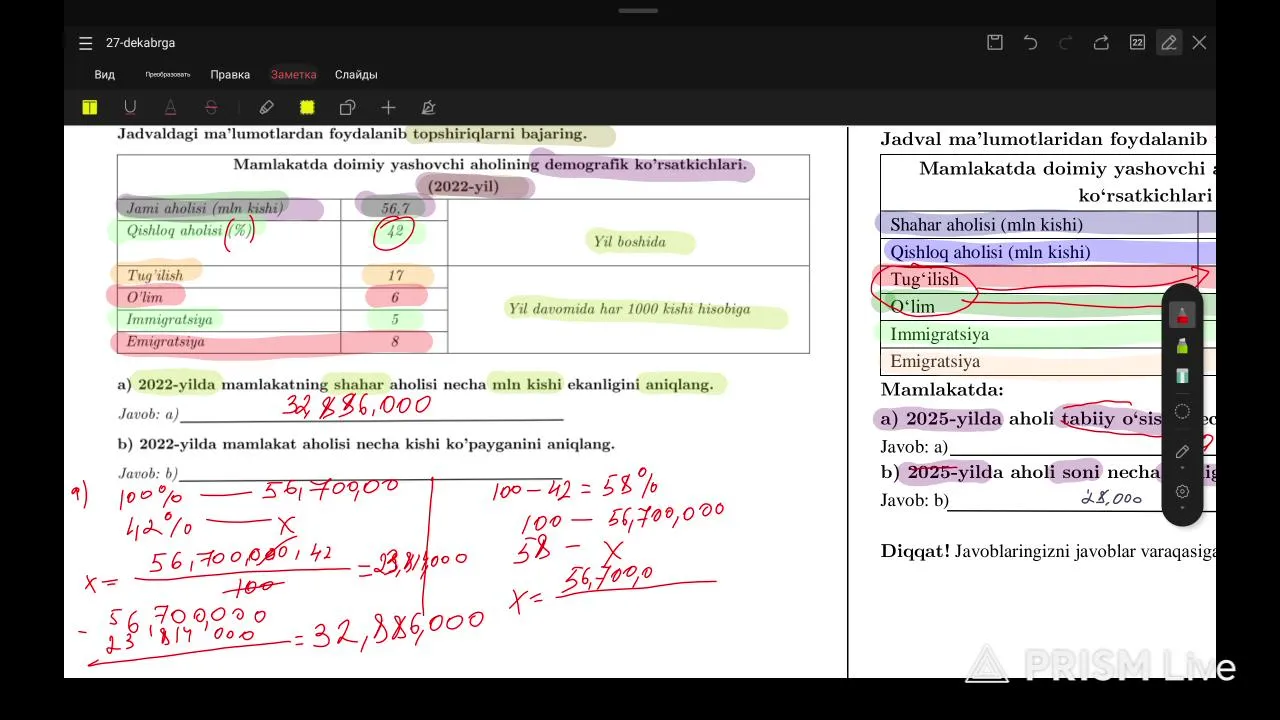 27-dekabrga
22
Вид Преобразовать Правка Заметка Слайды
T U A S
Jadvaldagi ma'lumotlardan foydalanib topshiriqlarni bajaring.
Mamlakatda doimiy yashovchi aholining demografik ko'rsatkichlari.
(2022-yil)
Jami aholisi (mln kishi) 56,7
Qishloq aholisi (%) 42
Yil boshida
Tug'ilish 17
O'lim 6
Immigratsiya 5
Emigratsiya 8
Yil davomida har 1000 kishi hisobiga
a) 2022-yilda mamlakatning shahar aholisi necha mln kishi ekanligini aniqlang.
Javob: a) 32,886,000
b) 2022-yilda mamlakat aholisi necha kishi ko'payganini aniqlang.
Javob: b)
a) 100% — 56,700,00
42% — x
x = 56,700,000,42
100
=23,814000
56,700,000
- 23 814 000
= 32,886,000
100 - 42 = 58%
100 — 56,700,000
58 — x
x = 56,700,0
Jadval ma'lumotlaridan foydalanib
Mamlakatda doimiy yashovchi a
ko'rsatkichlari
Shahar aholisi (mln kishi)
Qishloq aholisi (mln kishi)
Tug'ilish
O'lim
Immigratsiya
Emigratsiya
Mamlakatda:
a) 2025-yilda aholi tabiiy o'sis
Javob: a)
b) 2025-yilda aholi soni necha
Javob: b) 28,000
Diqqat! Javoblaringizni javoblar varaqasiga
PRISM Live